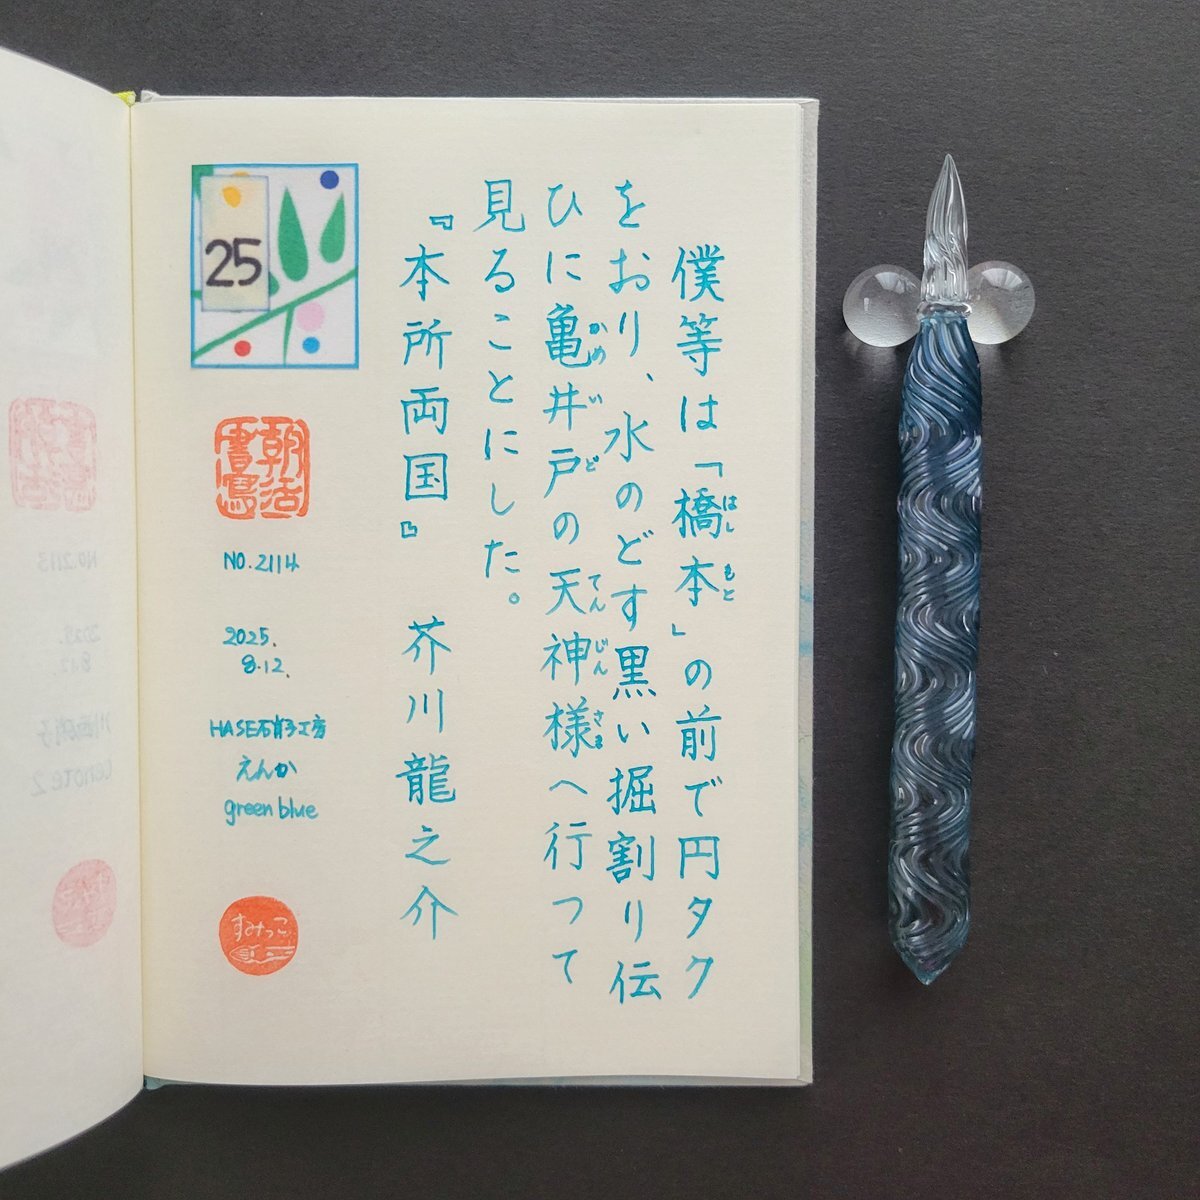 僕等は「橋本」の前で円タク
はしもと
をおり、水のどす黒い掘割り伝
ひに亀井戸の天神様へ行つて
かめいど てんじんさま
見ることにした。
『本所両国』 芥川龍之介
25
朝活書寫
NO.2114
2025.
8.12.
HASE硝子工房
えんか
green blue
すみっこ
NO.2113
2025.
8.12.